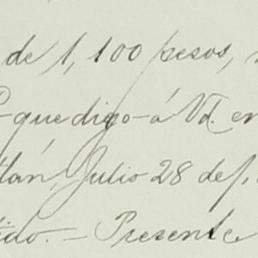 de 1,100 pesos,
que digo á Vd. en
tlán, Julio 28 de
ido. — Presente